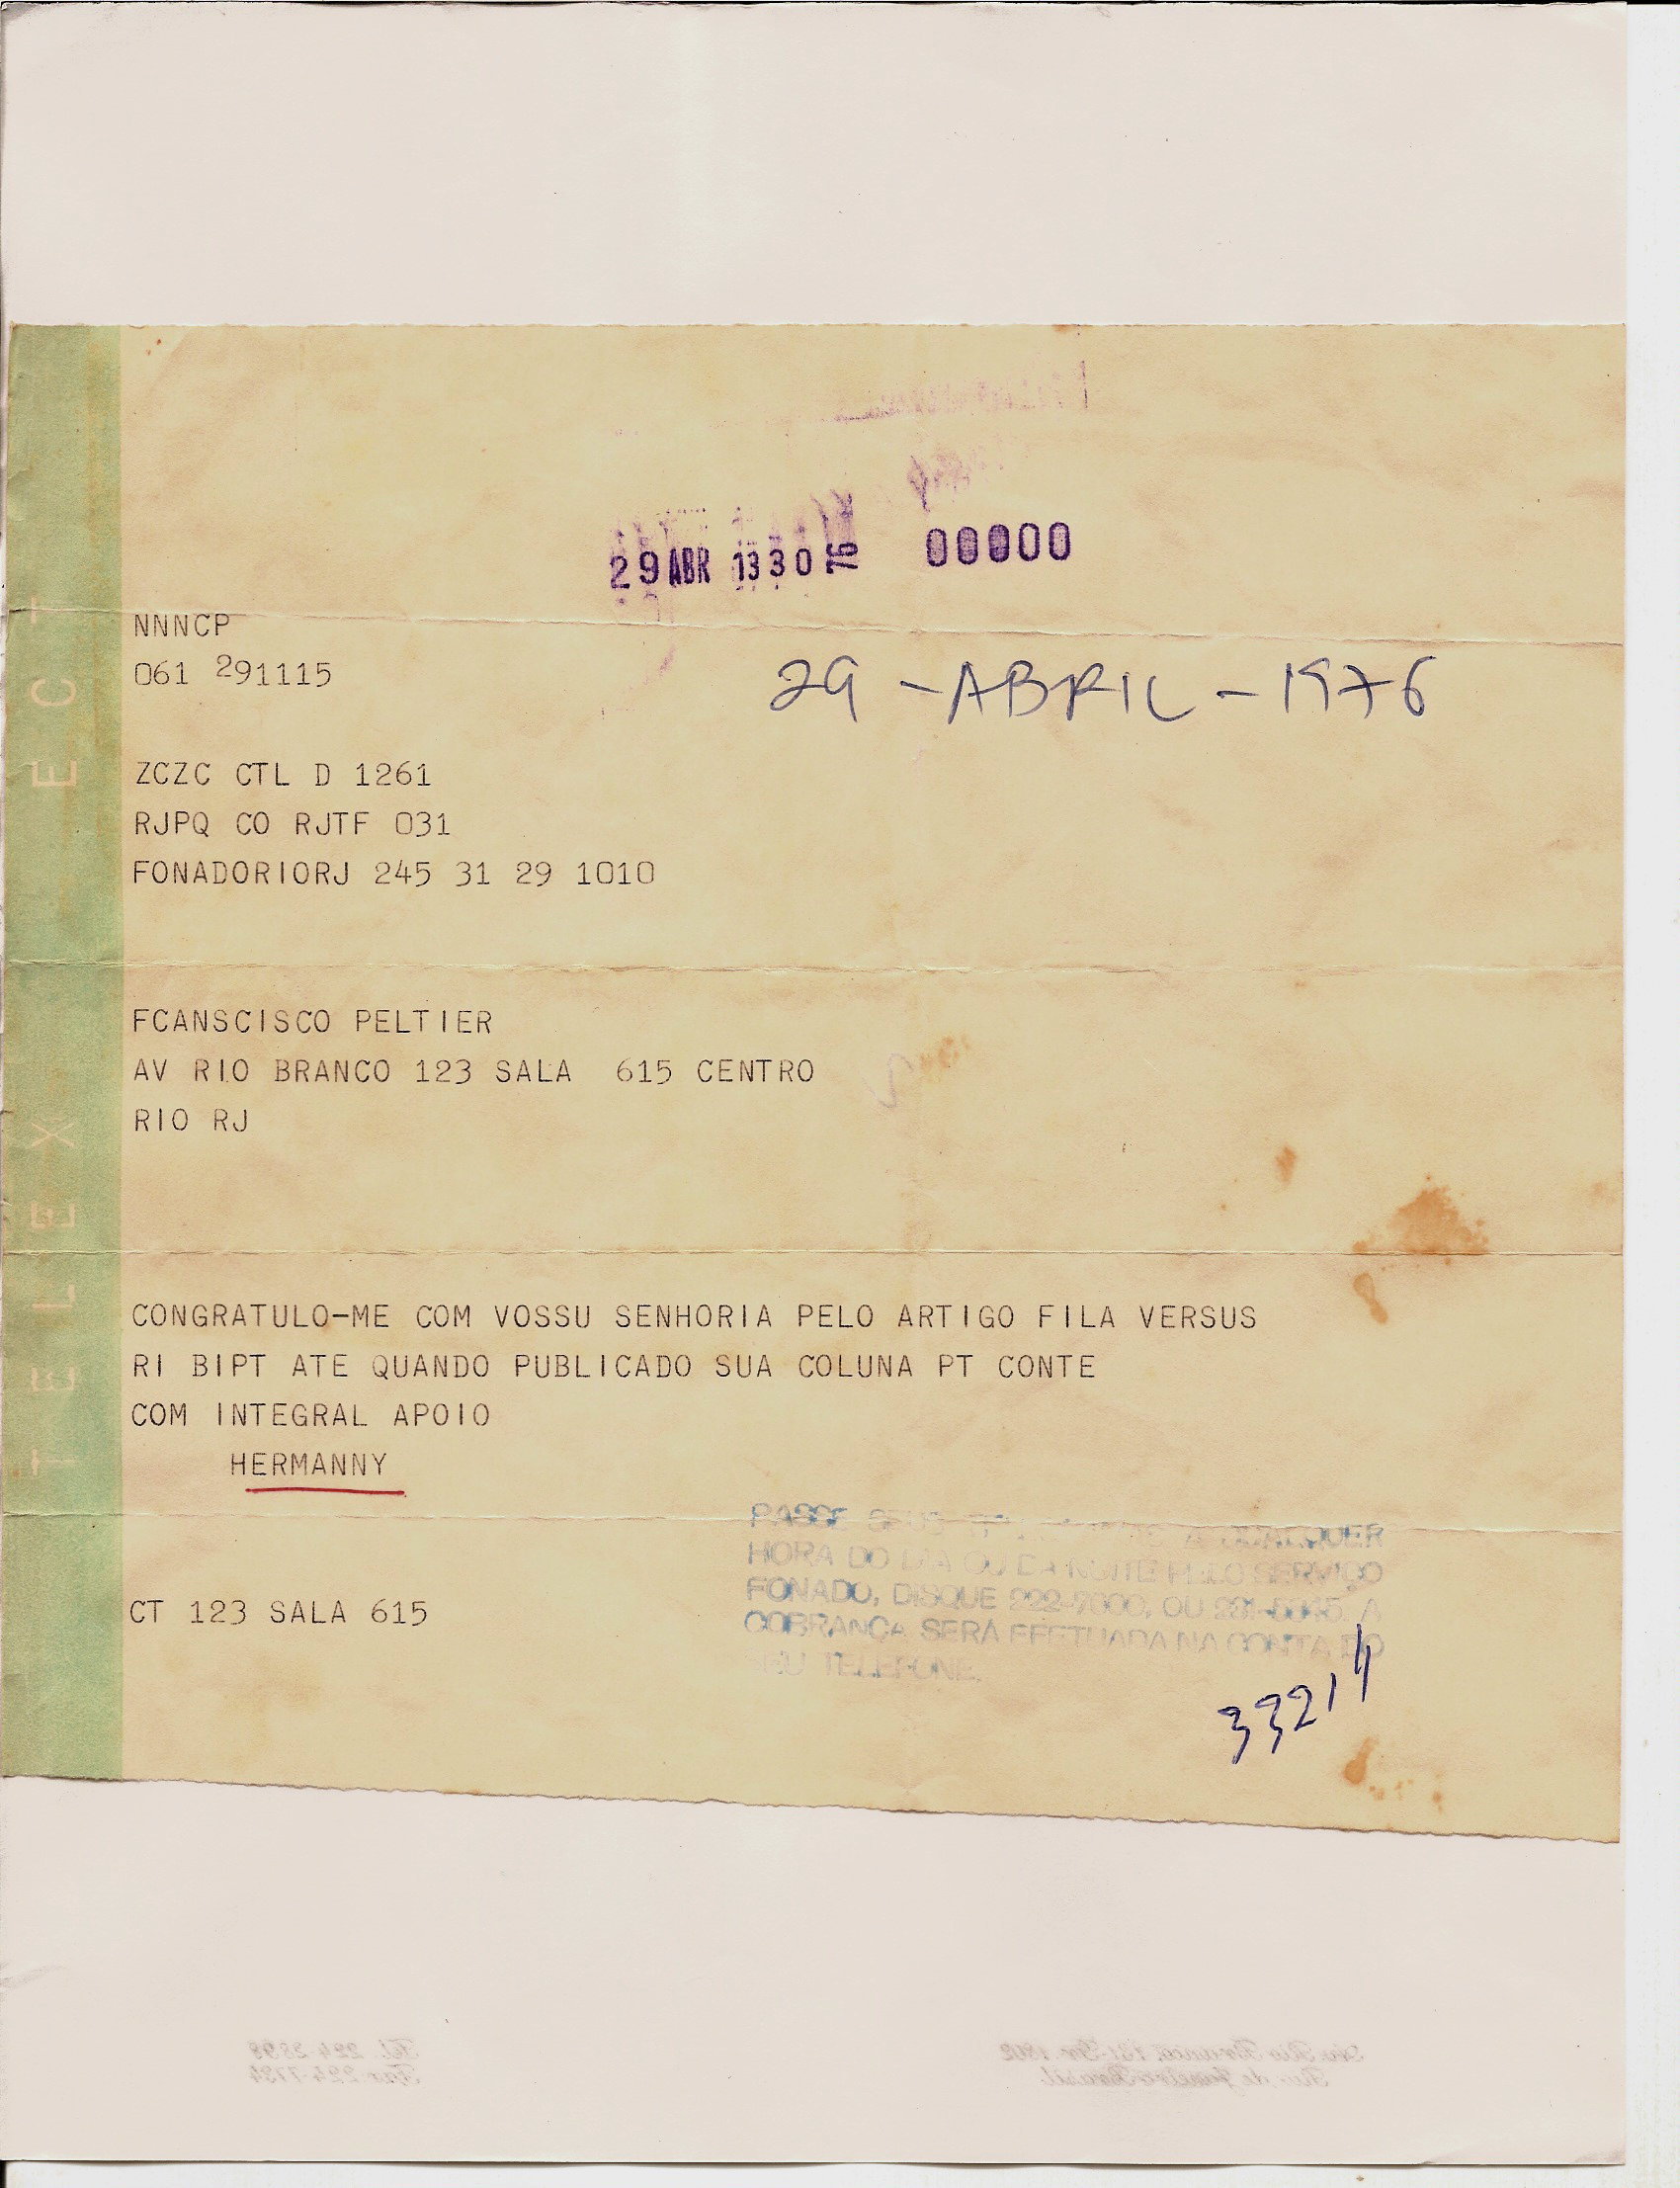 29 ABR 1330 76 00000
NNNCP
061 291115
29-ABRIL-1976
ZCZC CTL D 1261
RJPQ CO RJTF 031
FONADORIORJ 245 31 29 1010
FCANSCISCO PELTIER
AV RIO BRANCO 123 SALA 615 CENTRO
RIO RJ
CONGRATULO-ME COM VOSSU SENHORIA PELO ARTIGO FILA VERSUS
RI BIPT ATE QUANDO PUBLICADO SUA COLUNA PT CONTE
COM INTEGRAL APOIO
HERMANNY
PASSE SEUS A QUALQUER
HORA DO DIA OU DA NOITE PELO SERVIÇO
FONADO, DISQUE OU A
COBRANÇA SERÁ EFETUADA NA CONTA DO
SEU TELEFONE.
CT 123 SALA 615
33214
TELEX ECT
Av. Rio Branco, 181 Gr. 1802
Rio de Janeiro Brasil
Tel. 224-2898
Fax 224-7784